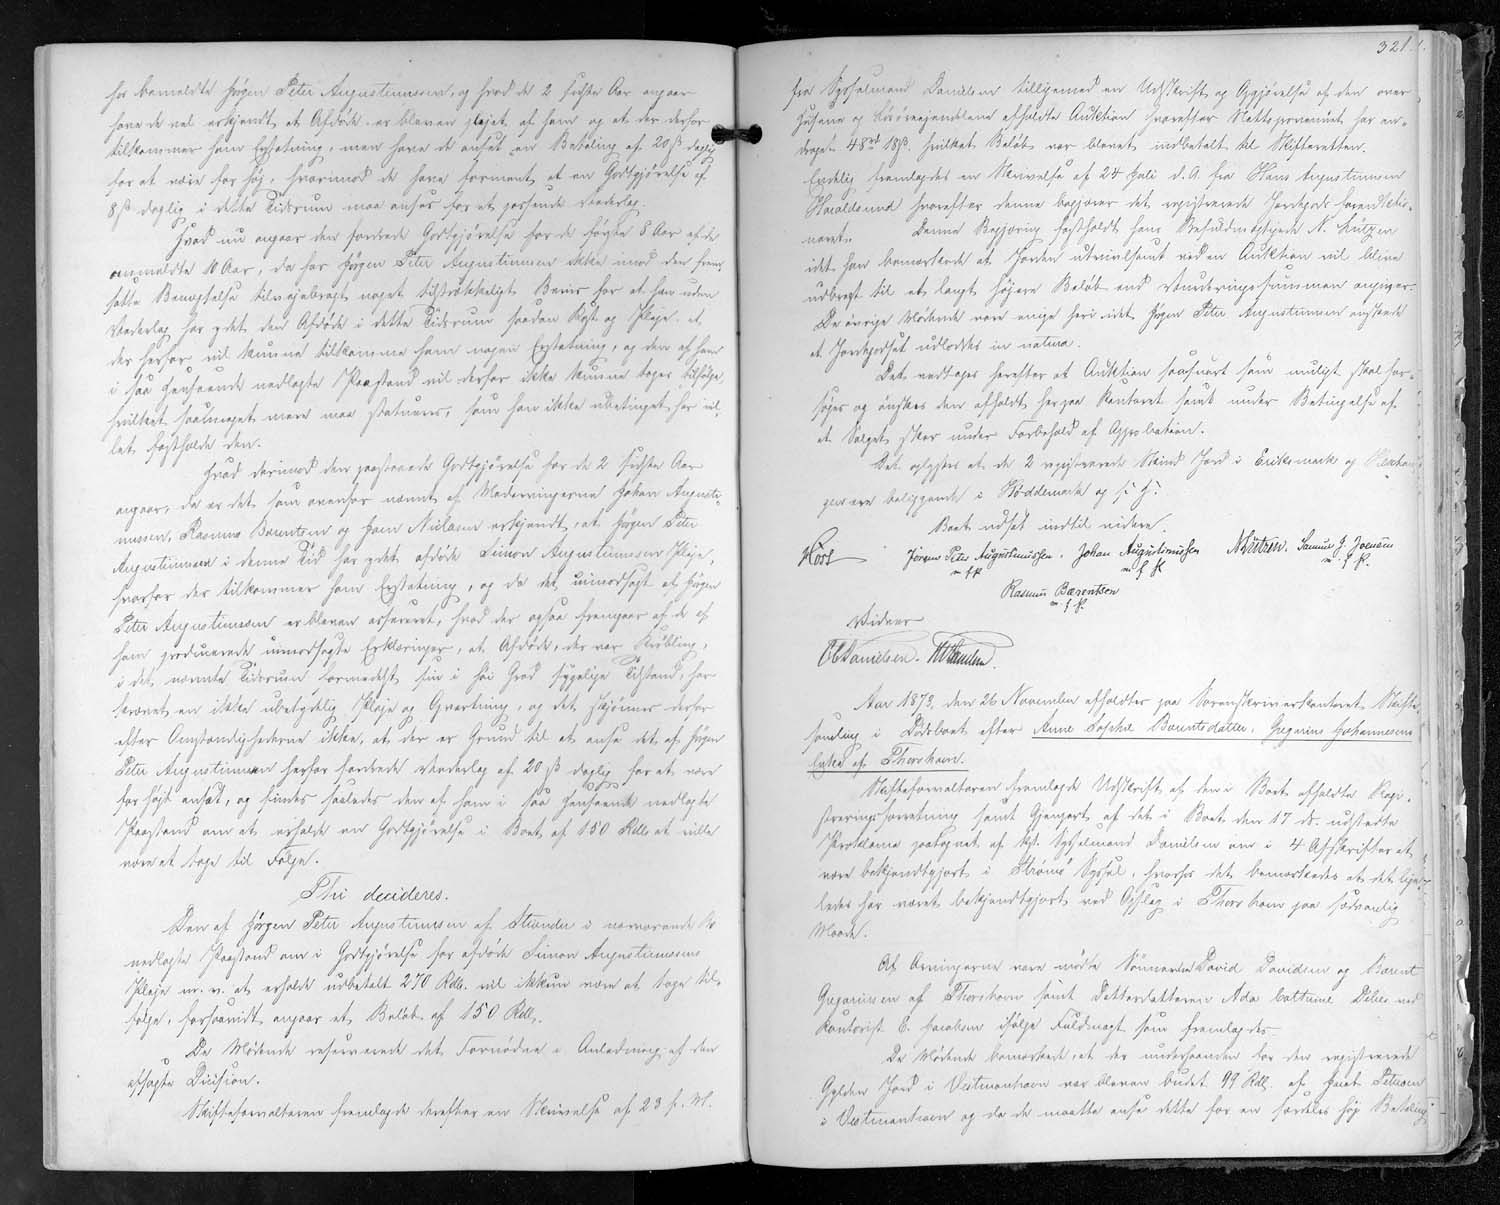 for bemeldte Jørgen Peter Augustinussen, og hvad de 2 sidste Aar angaar
have de vel erkjendt at Afdøde er bleven plejet af ham og at der derfor
tilkommer ham Erstatning, men have de anset en Betaling af 20 ß daglig
for at være for høj, hvorimod de have forment at en Godtgjørelse af
8 ß daglig i dette Tidsrum maa anses for et passende Vederlag.
Hvad nu angaar den fordrede Godtgjørelse for de første 8 Aar af de
ommeldte 10 Aar, da har Jørgen Peter Augustinussen ikke imod den frem-
satte Benægtelse tilvejebragt noget tilstrækkeligt Beviis for at han uden
Vederlag har ydet den Afdøde i dette Tidsrum saadan Kost og Pleje, at
der herfor vil kunne tilkomme ham nogen Erstatning, og den af ham
i saa Henseende nedlagte Paastand vil derfor ikke kunne tages tilfølge,
hvilket saameget mere maa statueres, som han ikke ubetinget har vil-
let fastholde den.
Hvad derimod den paastaaede Godtgjørelse for de 2 sidste Aar
angaar, da er det som ovenfor nævnt af Medarvingerne Johan Augusti-
nussen, Rasmus Barentsen og Joen Niclasen erkjendt, at Jørgen Peter
Augustinussen i denne Tid har ydet afdøde Simon Augustinussen Pleje,
hvorfor der tilkommer ham Erstatning, og da det uimodsagt af Jørgen
Peter Augustinussen er bleven assureret, hvad der ogsaa fremgaar af de af
ham producerede uimodsagte Erklæringer, at Afdøde, der var Krøbling,
i det nævnte Tidsrum formedelst sin i høi Grad sygelige Tilstand, har
krævet en ikke ubetydelig Pleje og Opvartning, og det skjønnes derfor
efter Omstændighederne ikke, at der er Grund til at anse det af Jørgen
Peter Augustinussen herfor fordrede Vederlag af 20 ß daglig for at være
for højt ansat, og findes saaledes den af ham i saa Henseende nedlagte
Paastand om at erholde en Godtgjørelse i Boet af 150 Rdlr at ville
være at tage til Følge.
Thi decideres.
Den af Jørgen Peter Augustinussen af Strender i nærværende Bo
nedlagte Paastand om i Godtgjørelse for afdøde Simon Augustinussens
Pleje m. v. at erholde udbetalt 270 Rdlr. vil ikkun være at tage til-
følge, forsaavidt angaar et Beløb af 150 Rdlr.
De Mødende reserverede det Fornødne i Anledning af den
afsagte Decision.
Skifteforvalteren fremlagde derefter en Skrivelse af 23 f. M.
321.
fra Sysselmand Danielsen tilligemed en Udskrift og Opgjørelse af den over
Husene og Løsøreejendelene afholdte Auktion hvorefter Nettoprovenuet har an-
draget 48 rd 18 ß. hvilket Beløb var blevet indbetalt til Skifteretten.
Endelig fremlagdes en Skrivelse af 24 Juli d. A. fra Hans Augustinussen
Haraldsund hvorefter denne begjærer det registrerede Jordegods foren Auktio-
neret. Denne Begjæring fastholdt hans Befuldmægtigede N. Mützen
idet han bemærkede at Jorden utvivlsomt ved en Auktion vil blive
udbragt til et langt højere Beløb end Vurderingssummen angiver.
De øvrige Mødende vare enige heri idet Jørgen Peter Augustinussen ønskede
at Jordegodset udloddes in natura.
Det vedtoges herefter at Auktion saasnart som muligt skal for-
søges og ønskes den afholdt herpaa Kontoret samt under Betingelse af
at Salget sker under Forbehold af Approbation.
Det oplystes at de 2 registrerede Skind Jord i Eriksmark og
gen ere beliggende i Høddemark og
Boet udsat indtil videre.
Jørens Peter Augustinussen. Johan Augustinussen NMützen. Samuel J. Joensen
m f P m. f. P. m. f. P.
Rasmus Barentsen
m. f. P.
Vidner
Aar 1873, den 26 November afholdtes paa Sorenskriverkontoret Skifte-
samling i Dødsboet efter Anne Sophie Barentsdatter, Gregorius Johannesens
Enke af Thorshavn.
Skifteforvalteren fremlagde Udskrift af den i Boet afholdte Regi-
streringsforretning samt Gjenpart af det i Boet den 17 ds. udstedte
Proklama paategnet af Kst. Sysselmand Danielsen om i 4 Afskrifter at
være bekjendtgjort i Strømø Syssel, hvorhos det bemærkedes at det lige-
ledes har været bekjendtgjort ved Opslag i Thorshavn paa sædvanlig
Maade.
Af Arvingerne vare mødte Sønnerne David Davidsen og Barent
Gregorissen af Thorshavn samt Datterdatteren Ada Cathrine Debes ved
Kontorist E. Jacobsen ifølge Fuldmagt som fremlagdes.
De Mødende bemærkede, at der underhaanden for den registrerede
Gylden Jord i Vestmanhavn var bleven budet 99 Rdl. af Joen Petersen
i Vestmanhavn og da de maatte anse dette for en særdeles høj Betaling